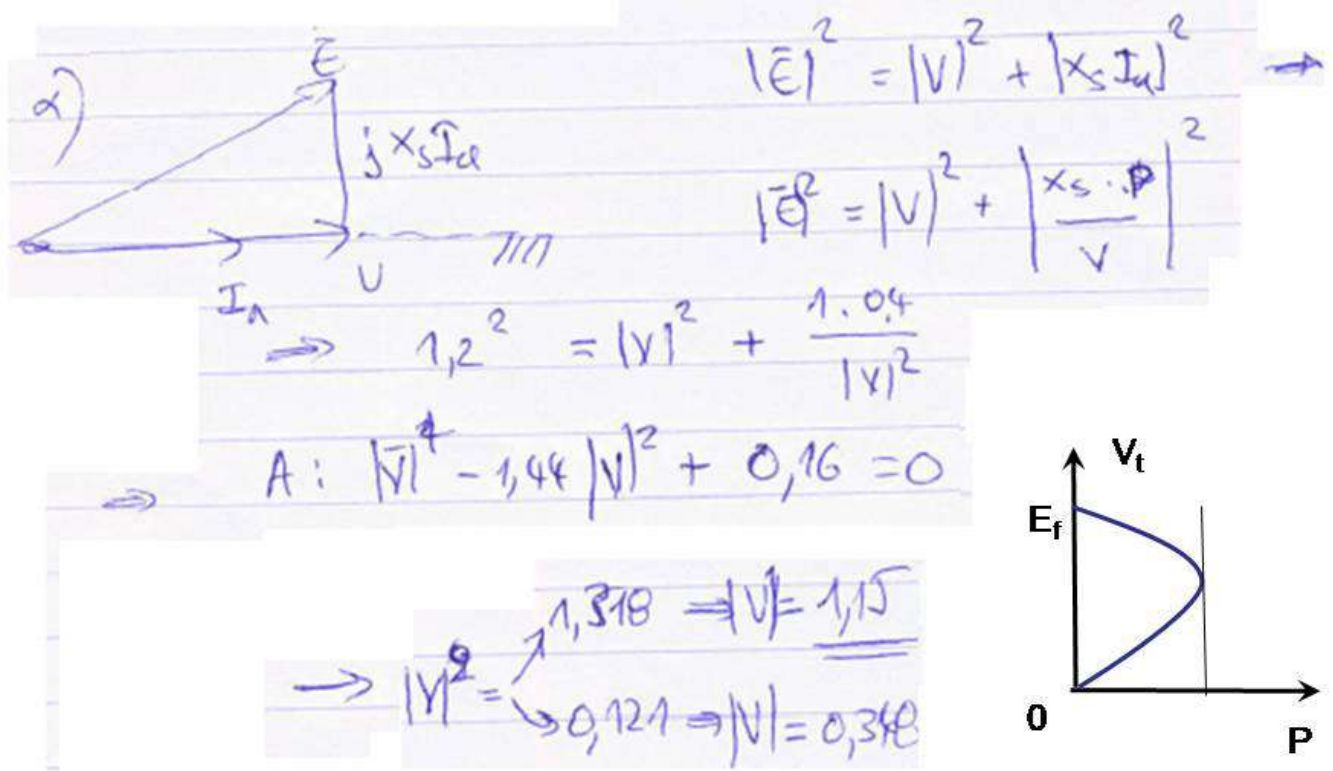 α)
Ē
j Xₛ Iα
Iₙ
U
|Ē|² = |V|² + |XₛIα|² →
|Ē|² = |V|² + |Xₛ · P / V|²
⇒ 1,2² = |V|² + 1 · 0,4 / |V|²
⇒ A : |V̄|⁴ - 1,44 |V|² + 0,16 = 0
→ |V|² =
1,318 ⇒ |V| = 1,15
0,121 ⇒ |V| = 0,348
Vₜ
E_f
0
P